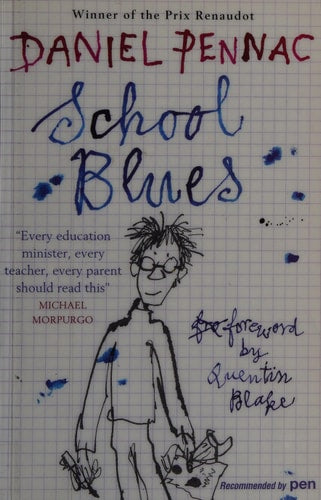 Winner of the Prix Renaudot
DANIEL PENNAC
School
Blues
"Every education
minister, every
teacher, every parent
should read this"
MICHAEL
MORPURGO
foreword
by
Quentin
Blake
Recommended by pen